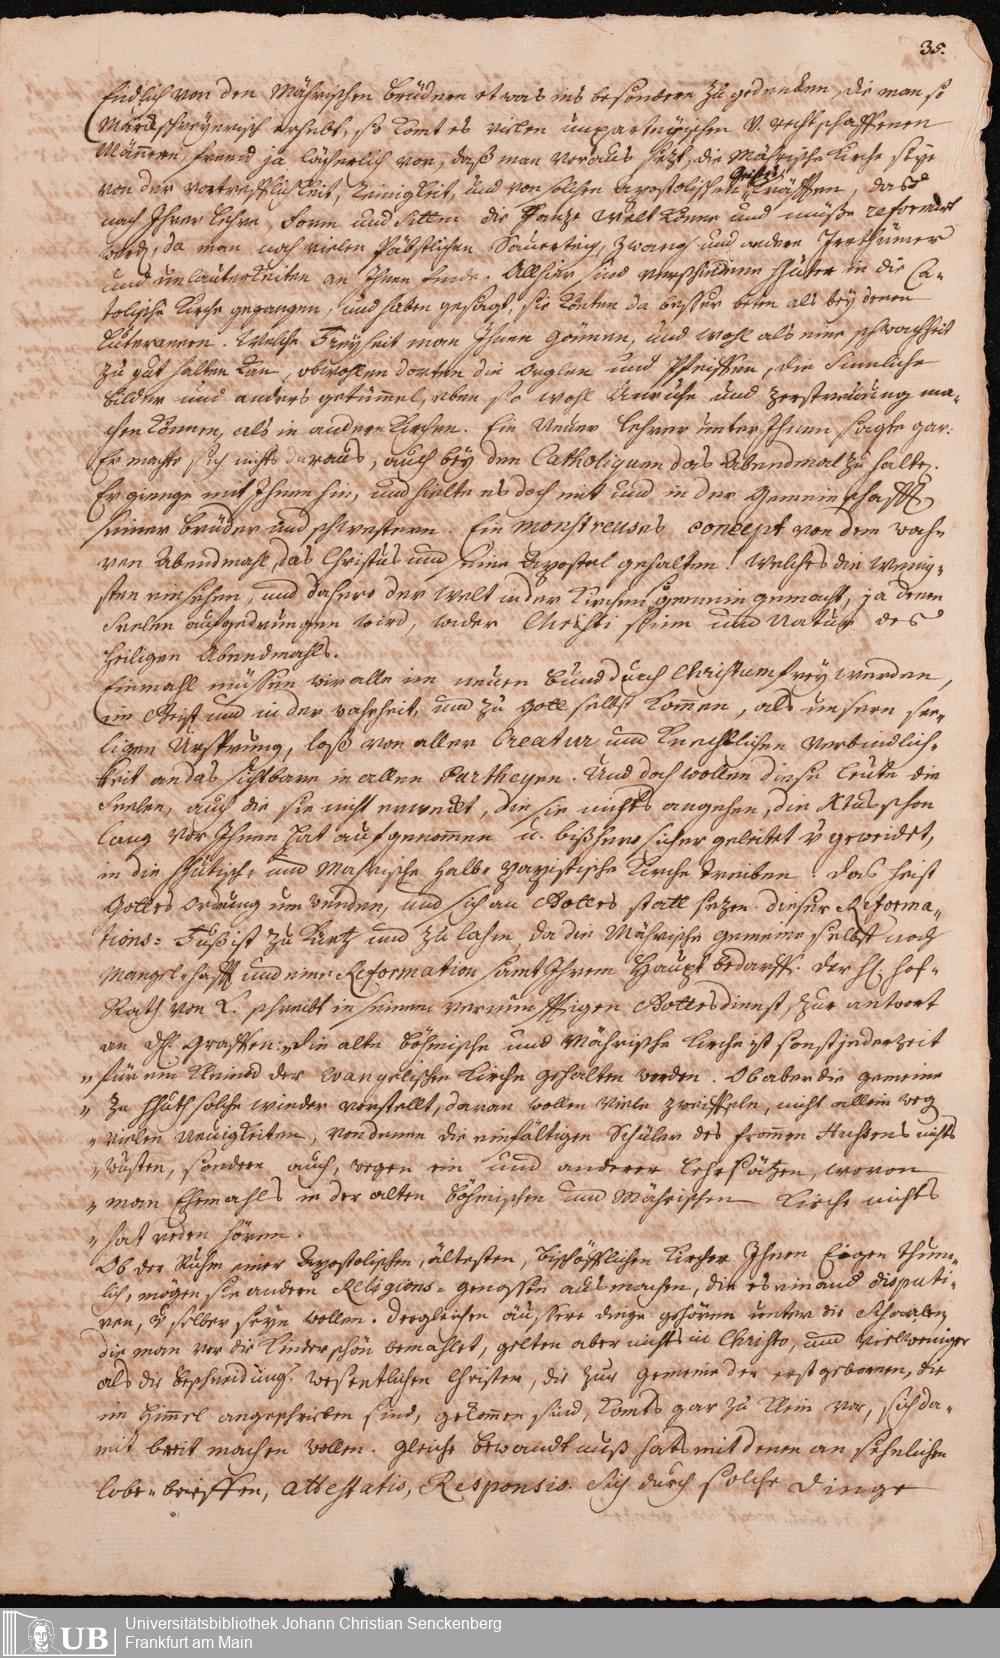 35.
Endlich von den Mährischen Brüdern etwas ins besondere zu gedenken, die man so
Marckschreyerisch erhebt, so komt es vielen unpartheyischen v. rechtschaffenen
Männern, fremd ja lächerlich vor, daß man voraus setzt, die Mährische Kirche seye
von der Vortrefflichkeit, Reinigkeit, und von solchen Apostolischen Geistes Kräfften, daß
nach Ihrer Lehre, Form und Sitten die Ganze Welt könne und müße reformirt
werden, da man noch vielen Päbstlichen Sauerteig, Zwang und andere Irrthümer
und unlauterkeiten an Ihnen finde. Allhier sind verschiedene Hhüter in die Ca-
tolische Kirche gegangen, und haben gesagt, sie könten da besser beten als bey denen
Luteranern. Welche Freyheit man Ihnen gönnen, und wohl als eine schwachheit
zu gut halten kan, obwohlen dorten die Orglen und Pfeiffen, die Sinnliche
bilder und anders getümmel, eben so wohl Unruhe und Zerstreuung ma-
chen können, als in andern Kirchen. Ein Neuer Lehrer unter Ihnen sagte gar:
Er mache sich nichts daraus, auch bey den Catholiquen das Abendmal zu halten.
Er gienge mit Ihnen hin, und hielte es doch mit und in der Gemeinschafft
seiner Brüder und schwestern. Ein monstreuses concept von dem wah-
ren Abendmahl, das Christus und seine Apostel gehalten! Welches die wenig-
sten einsehen, und dahero der Welt in der Kirchen gemein gemacht, ja denen
Seelen aufgedrungen wird, wider Christi sinn und Natur des
heiligen Abendmahls.
Einmahl müssen wir alle im neuen Bund durch Christum frey werden,
im Geist und in der wahrheit, und zu Gott selbst kommen, als unsern see-
ligen Ursprung, loß von aller Creatur und knechtlichen Verbindlich-
keit an das sichtbare in allen Partheyen. Und doch wollen diese Leute die
Seelen, auch die sie nicht erweckt, die sie nichts angehen, die Xtus schon
lang vor Ihnen hat aufgenommen u. bißhero sicher geleitet v geweidet,
in die Hhütisch- und Mährische halb-papistische Kirche treiben. Das heist
Gottes Ordnung um wenden, und sich an Gottes statt sezen. dieser Reforma-
tions-Fuß ist zu kurtz und zu lahm, da die Mährische Gemeine selbst noch
Mangelhafft und einer Reformation samt Ihrem Haupt bedarff. der H. Hof-
Rath von L. schreibt in seinem vernünfftigen Gottesdienst, zur antwort
an H. Graffen: „Die alte Böhmische und Mährische Kirche ist sonst jederzeit
„ für ein Kleinod der Evangelischen Kirche gehalten worden. Ob aber die gemeine
„ zu Hhuth solche wieder vorstellt, daran wollen viele zweiffeln, nicht allein weg.
„ vielen Neuigkeiten, von denen die einfältigen Schüler des frommen Hussens nichts
„ wusten, sondern auch, wegen ein und anderer Lehrsätzen, wovon
„ man Ehemahls in der alten Böhmischen und Mährischen Kirche nichts
„ hat reden hören.
Ob der Ruhm einer Apostolischen, ältesten, bischöfflichen Kirche Ihnen Eigenthüm-
lich, mögen sie andern Religions-genossen ausmachen, die es niemand disputi-
ren, selber seyn wollen. dergleichen äussere dinge gehören unter die Schaalen,
die man vor die Kinder schön bemahlet, gelten aber nichts in Christo, und vielweniger
als die Beschneidung. Wesentlichen Christen, die zur Gemeine der erstgebornen, die
im Himmel angeschrieben sind, gekommen sind, komts gar zu klein vor, sich da-
mit breit machen wollen. gleiche bewandtnuß hats mit denen ansehnlichen
lobe-brieffen, Attestatis, Responsis. Sich durch solche Dinge
Universitätsbibliothek Johann Christian Senckenberg
Frankfurt am Main
UB